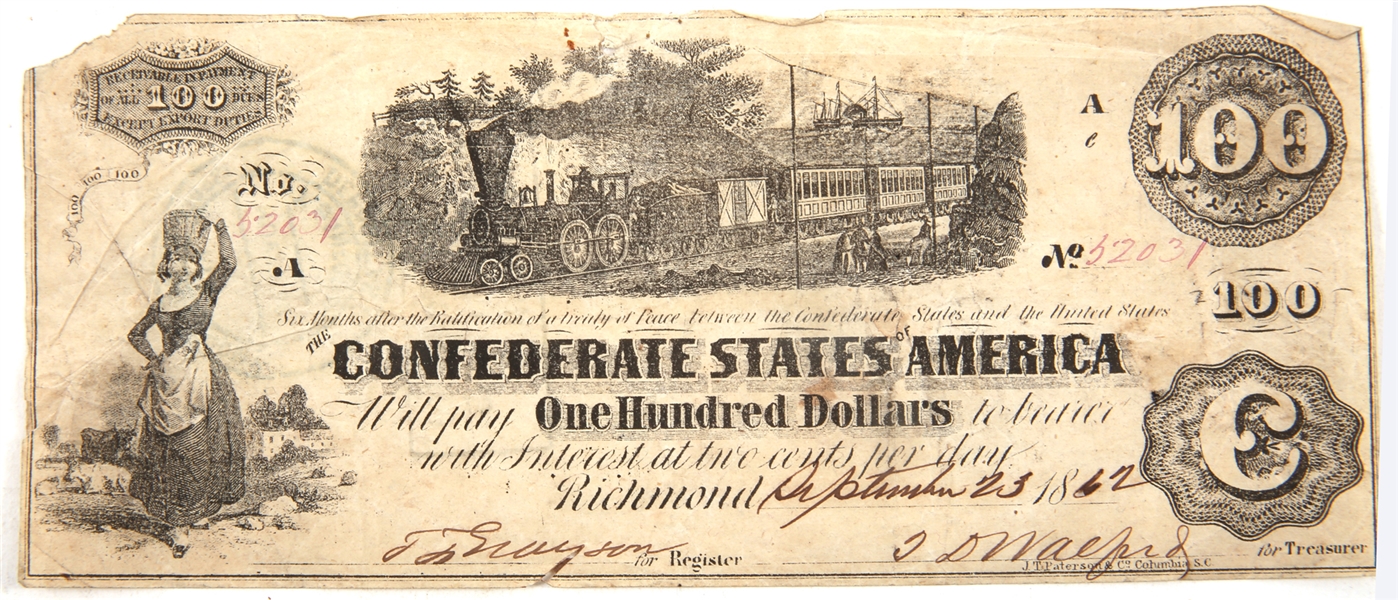 RECEIVABLE IN PAYMENT
OF ALL 100 DUES
EXCEPT EXPORT DUTIES
100 100 100
No.
52031
A
A
e
100
No 52031
100
Six Months after the Ratification of a treaty of Peace between the Confederate States and the United States
THE CONFEDERATE STATES OF AMERICA
Will pay One Hundred Dollars to bearer
with Interest at two cents per day
Richmond September 23 1862
C
for Register
for Treasurer
J. T. Paterson & Co. Columbia, S.C.